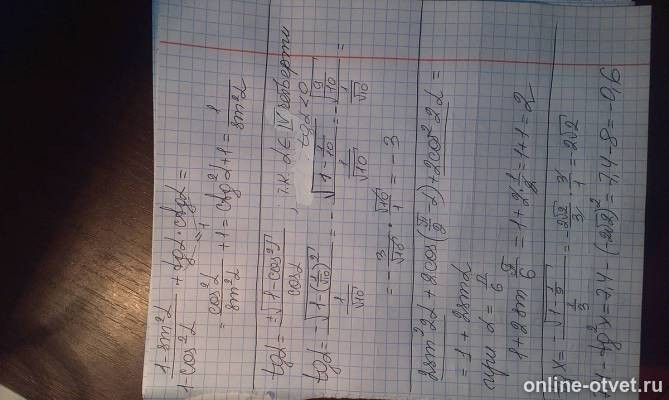 1-sin²α / 1-cos²α + tgα·ctgα =
= cos²α / sin²α + 1 = ctg²α + 1 = 1 / sin²α
tgα = ±√(1-cos²α) / cosα , т.к. α ∈ IV четверти
tgα < 0
tgα = -√(1-(1/√10)²) / (1/√10) = -√(1-1/10) / (1/√10) = -√(9/10) / (1/√10) =
= -3/√10 · √10/1 = -3
2sin²2α + 2cos(π/2 - α) + 2cos²2α =
= 1 + 2sinα
при α = π/6
1 + 2sin π/6 = 1 + 2·1/2 = 1+1 = 2
x = -√(1-1/9) / (1/3) = -2√2/3 · 3/1 = -2√2
- tg²x = 7,4 - (-2√2)² = 7,4 - 8 = -0,6
online-otvet.ru